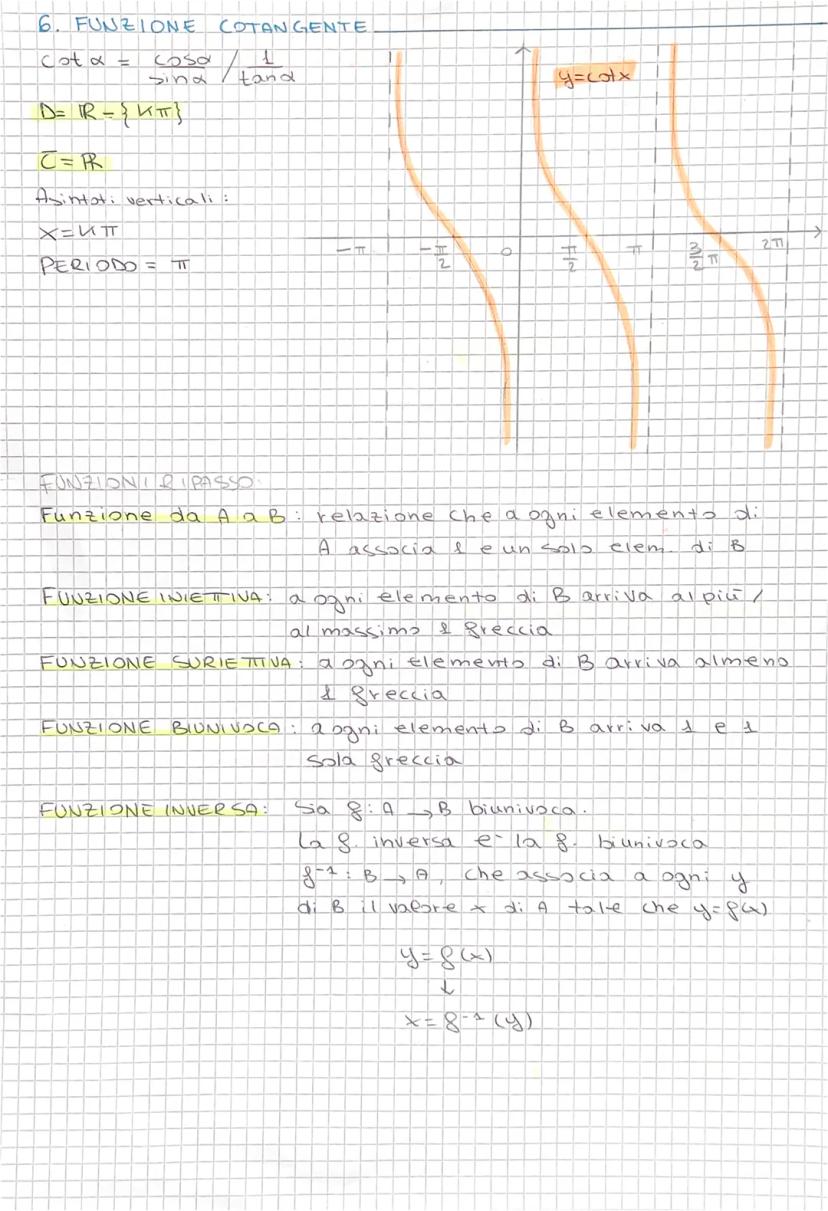 6. FUNZIONE COTANGENTE
cot α = cosα / sinα / 1 / tanα
y=cotx
D= ℝ - {kπ}
C = ℝ
Asintoti verticali:
x=kπ
PERIODO = π
-π -π/2 0 π/2 π 3/2 π 2π
FUNZIONI RIPASSO
Funzione da A a B: relazione che a ogni elemento di
A associa 1 e un solo elem. di B
FUNZIONE INIETTIVA: a ogni elemento di B arriva al più /
al massimo 1 freccia
FUNZIONE SURIETTIVA: a ogni elemento di B arriva almeno
1 freccia
FUNZIONE BIUNIVOCA: a ogni elemento di B arriva 1 e 1
sola freccia
FUNZIONE INVERSA: Sia f: A → B biunivoca.
La f. inversa e` la f. biunivoca
f⁻¹: B → A, che associa a ogni y
di B il valore x di A tale che y=f(x)
y=f(x)
↓
x=f⁻¹(y)